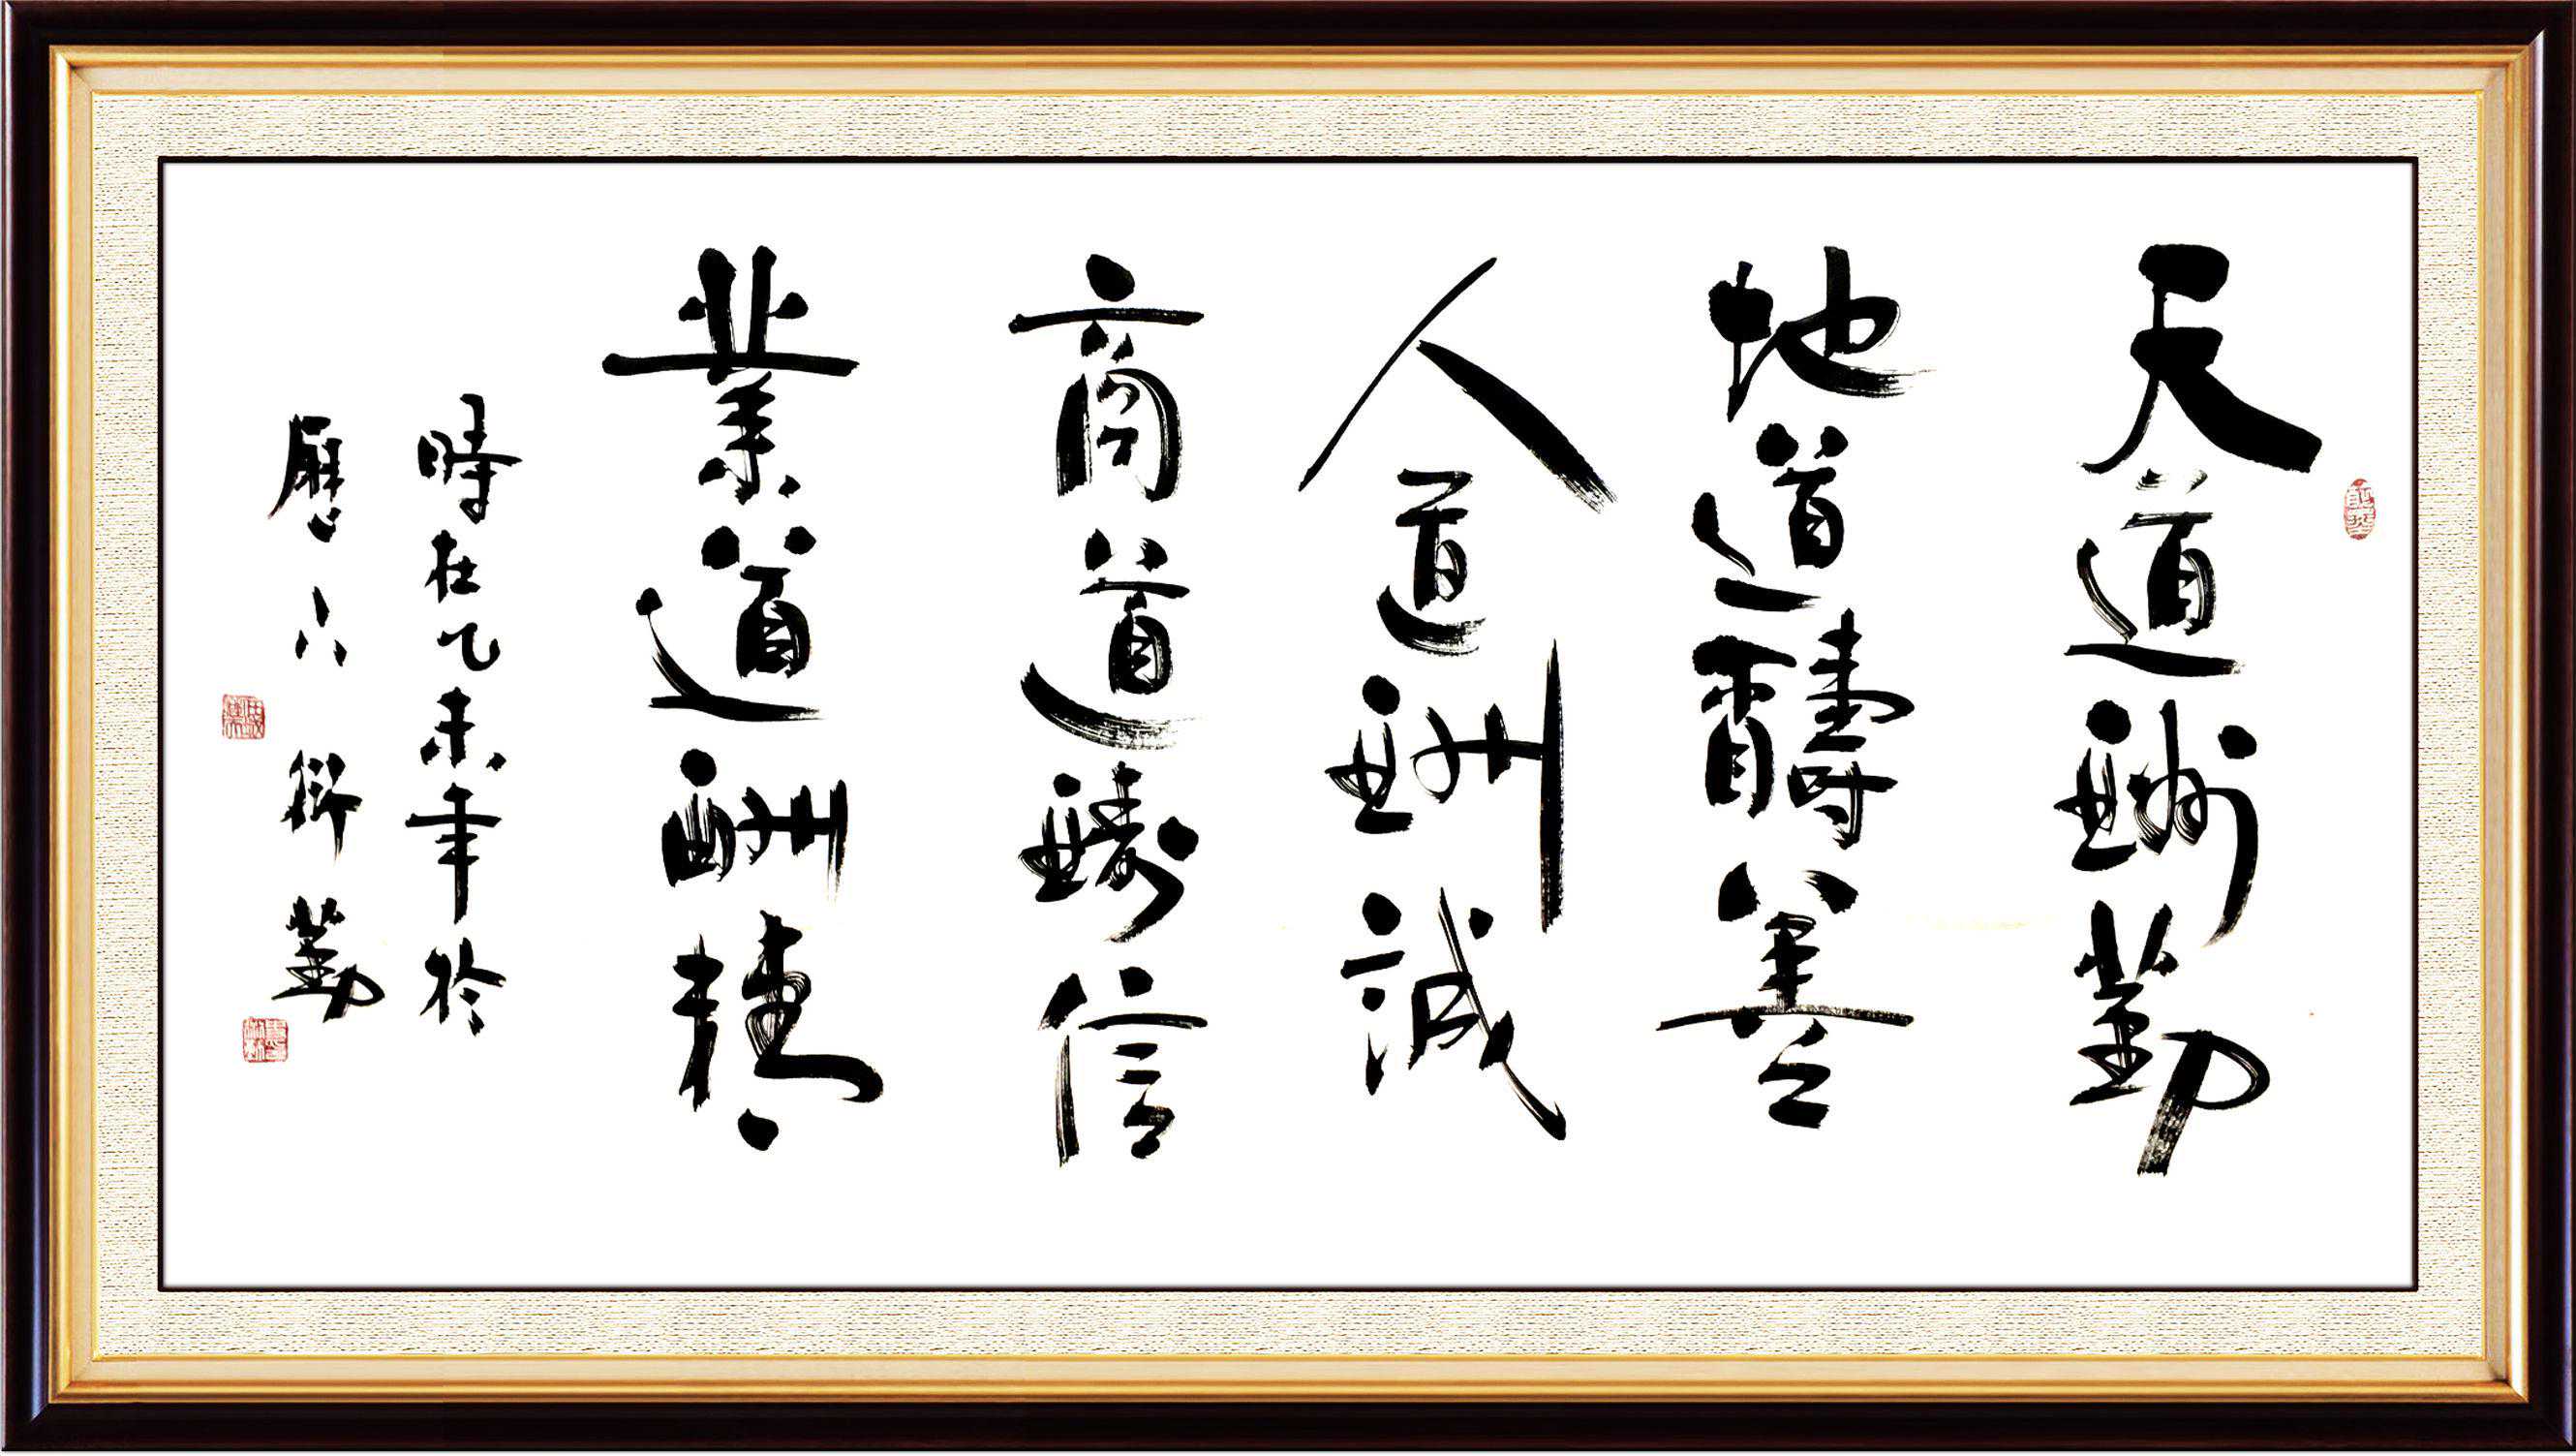 天道酬勤
地道醻善
人道酬誠
商道醻信
業道酬精
時在乙未年於
歷下 勤